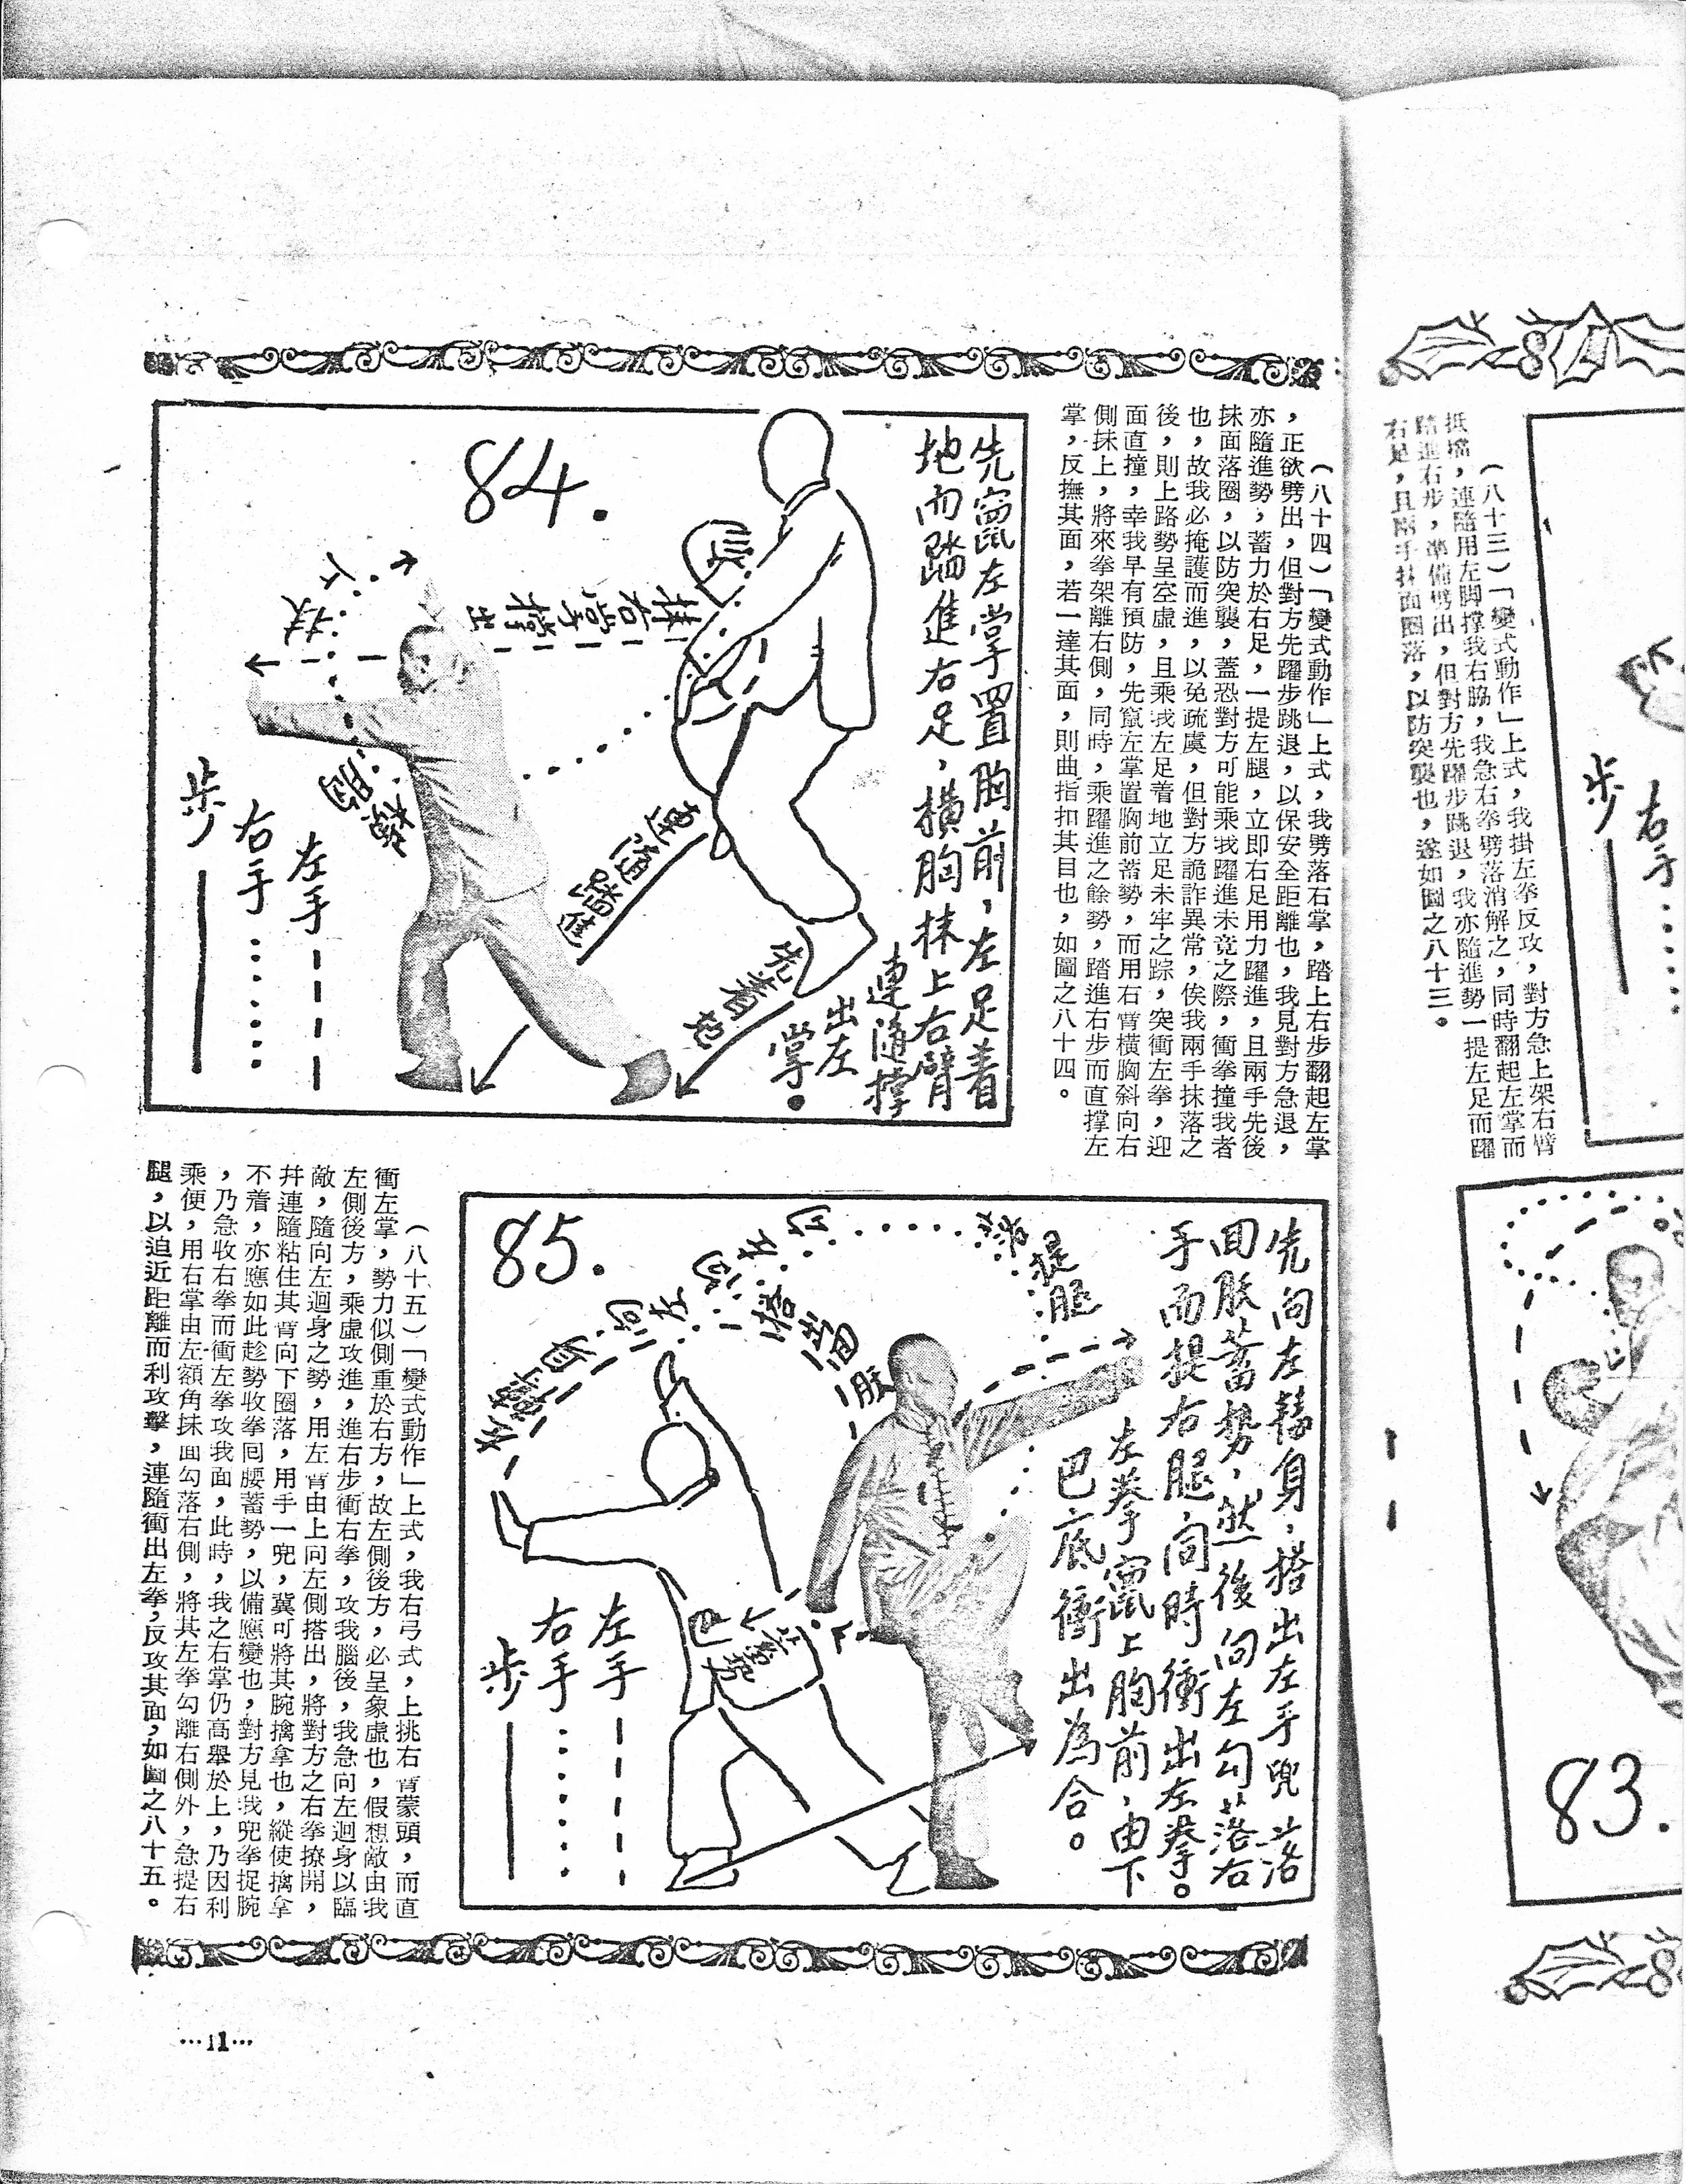 (八十三)「變式動作」上式,我掛左拳反攻,對方急上架右臂
抵檔,連隨用左脚撑我右脇,我急右拳劈落消解之,同時翻起左掌而
踏進右步,準備劈出,但對方先躍步跳退,我亦隨進勢一提左足而躍
右足,且兩手抹面圈落,以防突襲也,遂如圖之八十三。
右手
步
83.
(八十四)「變式動作」上式,我劈落右掌,踏上右步翻起左掌
,正欲劈出,但對方先躍步跳退,以保安全距離也,我見對方急退,
亦隨進勢,蓄力於右足,一提左腿,立即右足用力躍進,且兩手先後
抹面落圈,以防突襲,蓋恐對方可能乘我躍進未竟之際,衝拳撞我者
也,故我必掩護而進,以免疏虞,但對方詭詐異常,俟我兩手抹落之
後,則上路勢呈空虛,且乘我左足着地立足未牢之踪,突衝左拳,迎
面直撞,幸我早有預防,先竄左掌置胸前蓄勢,而用右臂橫胸斜向右
側抹上,將來拳架離右側,同時,乘躍進之餘勢,踏進右步而直撑左
掌,反撫其面,若一達其面,則曲指扣其目也,如圖之八十四。
84.
先竄左掌置胸前,左足着
地而踏進右足,橫胸抹上右臂
連隨撑
出左
掌。
抹右掌撑出
上抹
橫胸
連隨踏進
先着地
左手
右手
步
85.
先向左轉身,搭出左手兜落
回肱蓄勢,然後向左勾落右
手而提右腿,同時衝出左拳。
左拳竄上胸前,由下
巴底衝出為合。
勾落提腿
蓄勢
左手
右手
步
(八十五)「變式動作」上式,我右弓式,上挑右臂蒙頭,而直
衝左掌,勢力似側重於右方,故左側後方,必呈象虛也,假想敵由我
左側後方,乘虛攻進,進右步衝右拳,攻我腦後,我急向左迴身以臨
敵,隨向左迴身之勢,用左臂由上向左側搭出,將對方之右拳撩開,
幷連隨粘住其臂向下圈落,用手一兜,冀可將其腕擒拿也,縱使擒拿
不着,亦應如此趁勢收拳囘腰蓄勢,以備應變也,對方見我兜拳捉腕
,乃急收右拳而衝左拳攻我面,此時,我之右掌仍高舉於上,乃因利
乘便,用右掌由左額角抹面勾落右側,將其左拳勾離右側外,急提右
腿,以迫近距離而利攻擊,連隨衝出左拳,反攻其面,如圖之八十五。
…11…